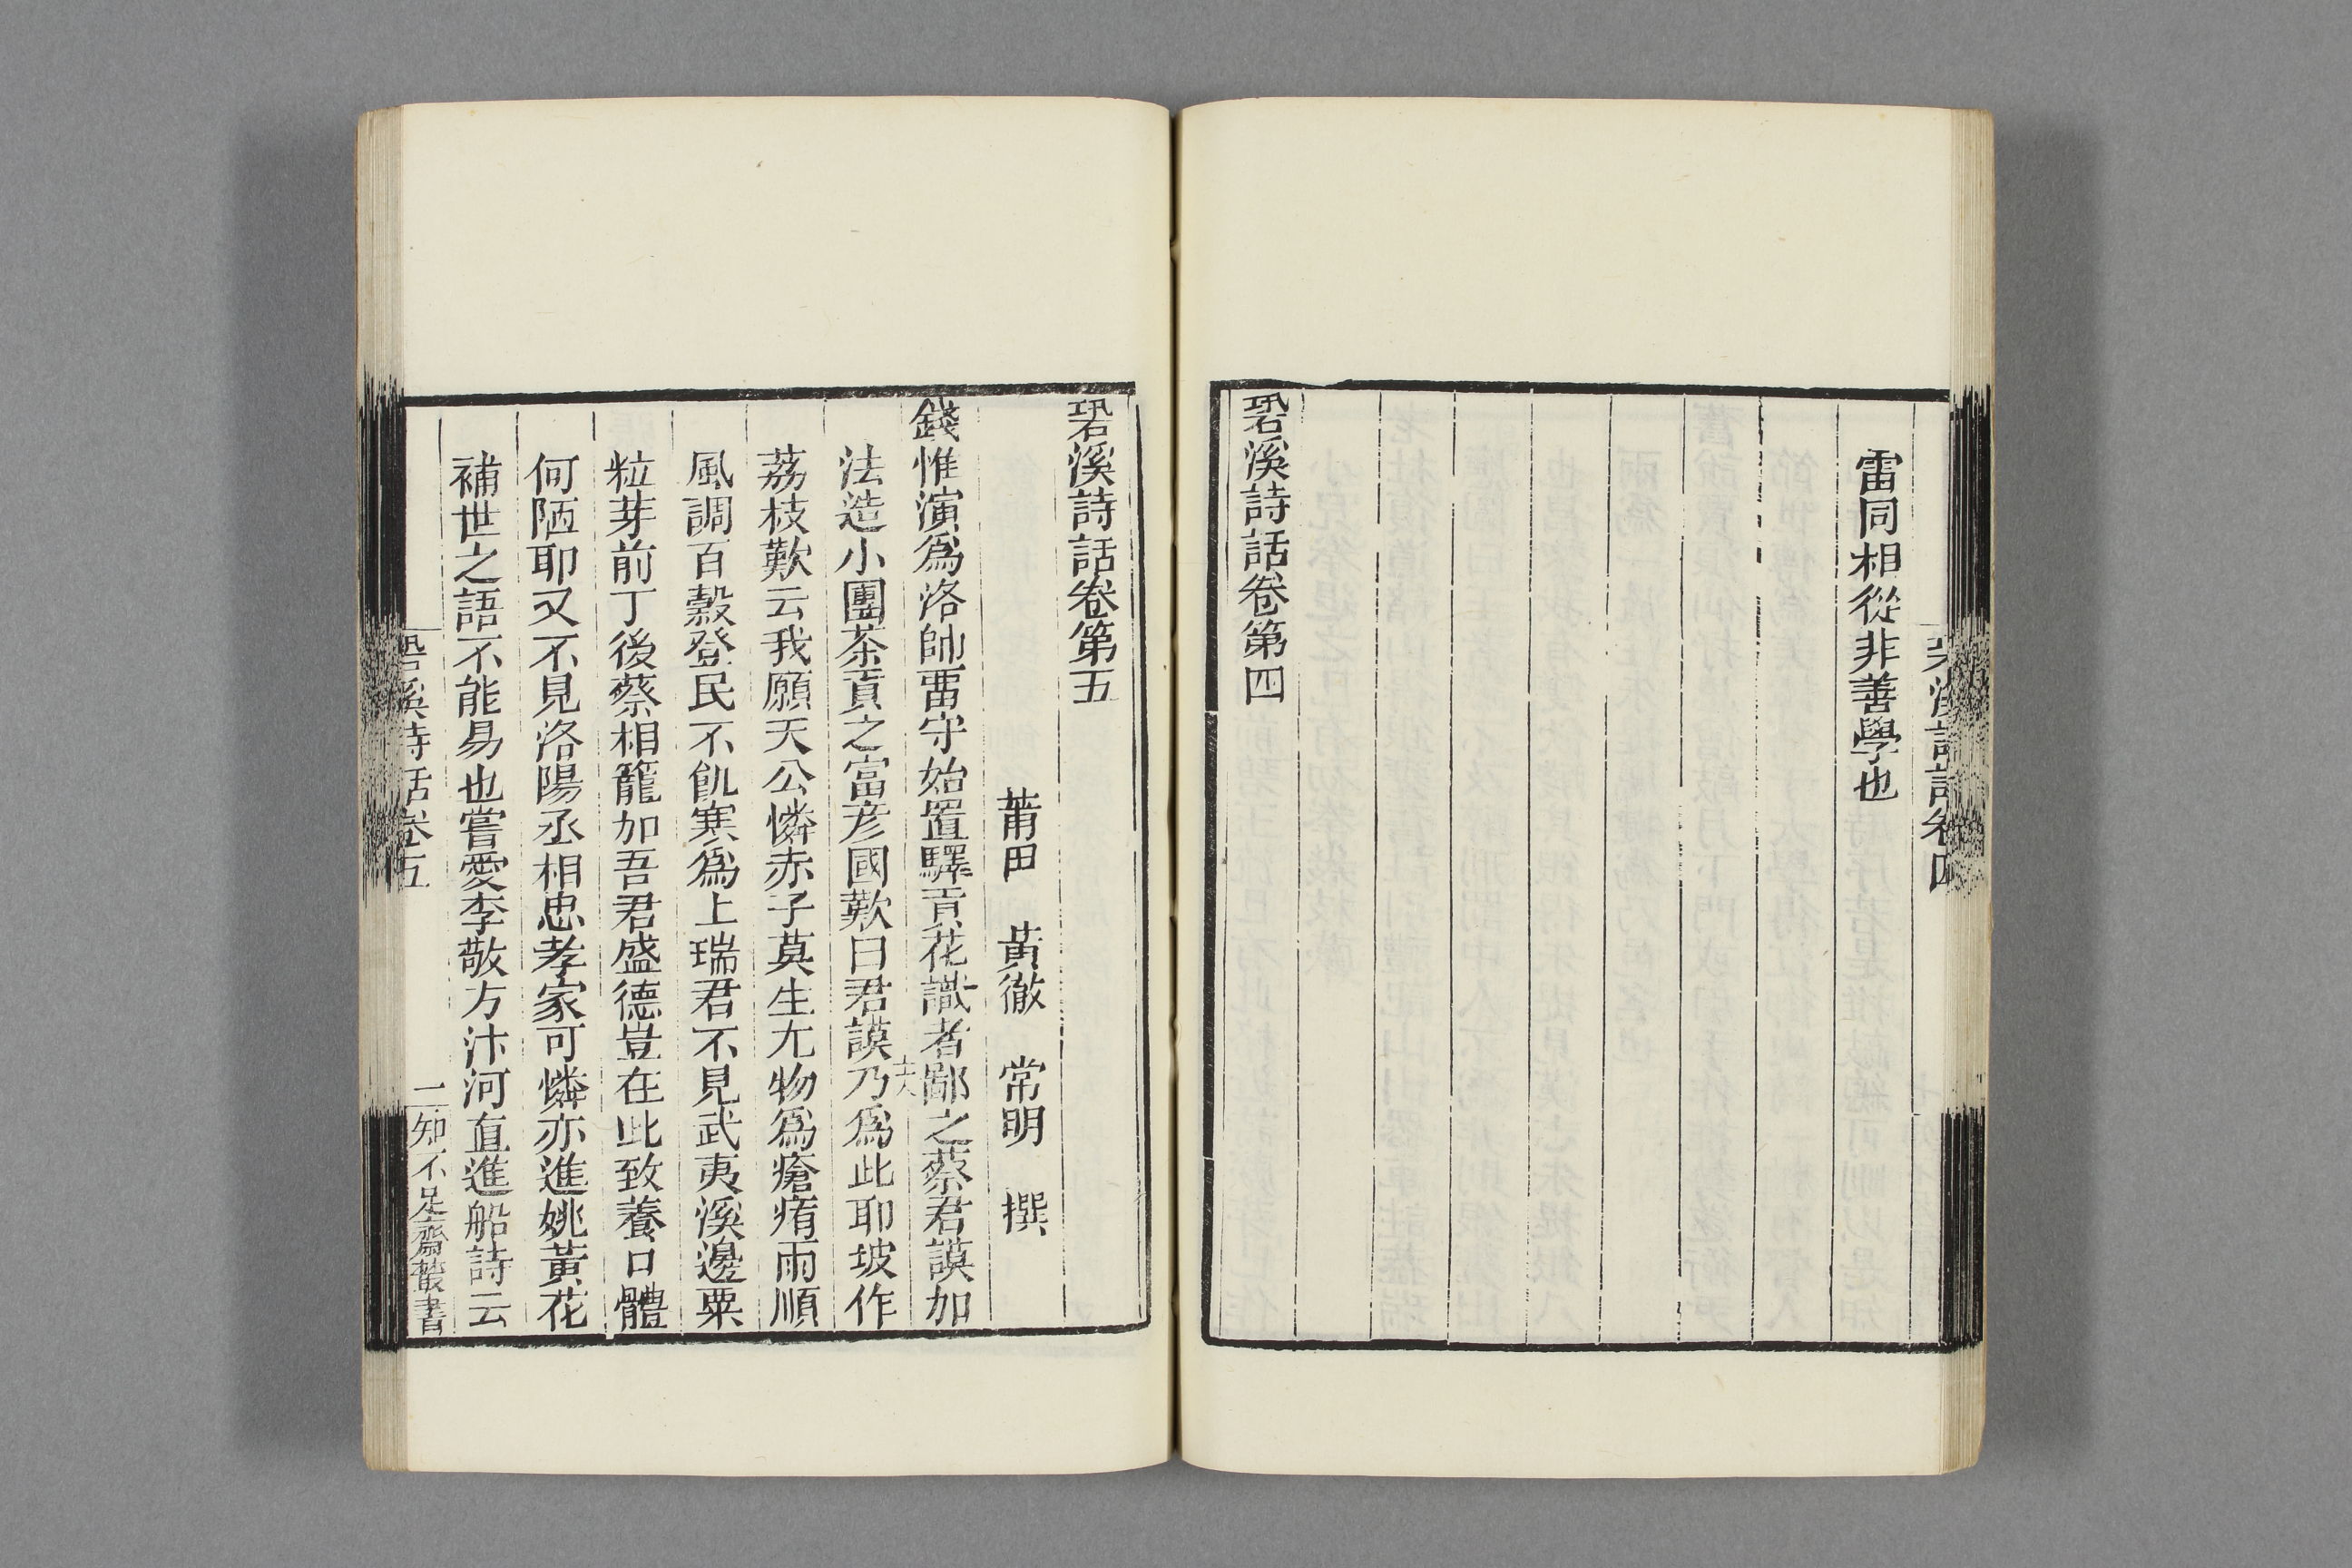 雷同相從非善學也
䂬溪詩話卷第四
䂬溪詩話卷第五
莆田 黃徹 常明 撰
錢惟演爲洛帥畱守始置驛貢花識者鄙之蔡君謨加
法造小團茶貢之富彦國歎曰君謨乃爲此耶坡作
荔枝歎云我願天公憐赤子莫生尤物爲瘡痏雨順
風調百穀登民不飢寒爲上瑞君不見武夷溪邊粟
粒芽前丁後蔡相籠加吾君盛德豈在此致養口體
何陋耶又不見洛陽丞相忠孝家可憐亦進姚黃花
補世之語不能易也嘗愛李敬方汴河直進船詩云
䂬溪詩話卷五
一
知不足齋叢書